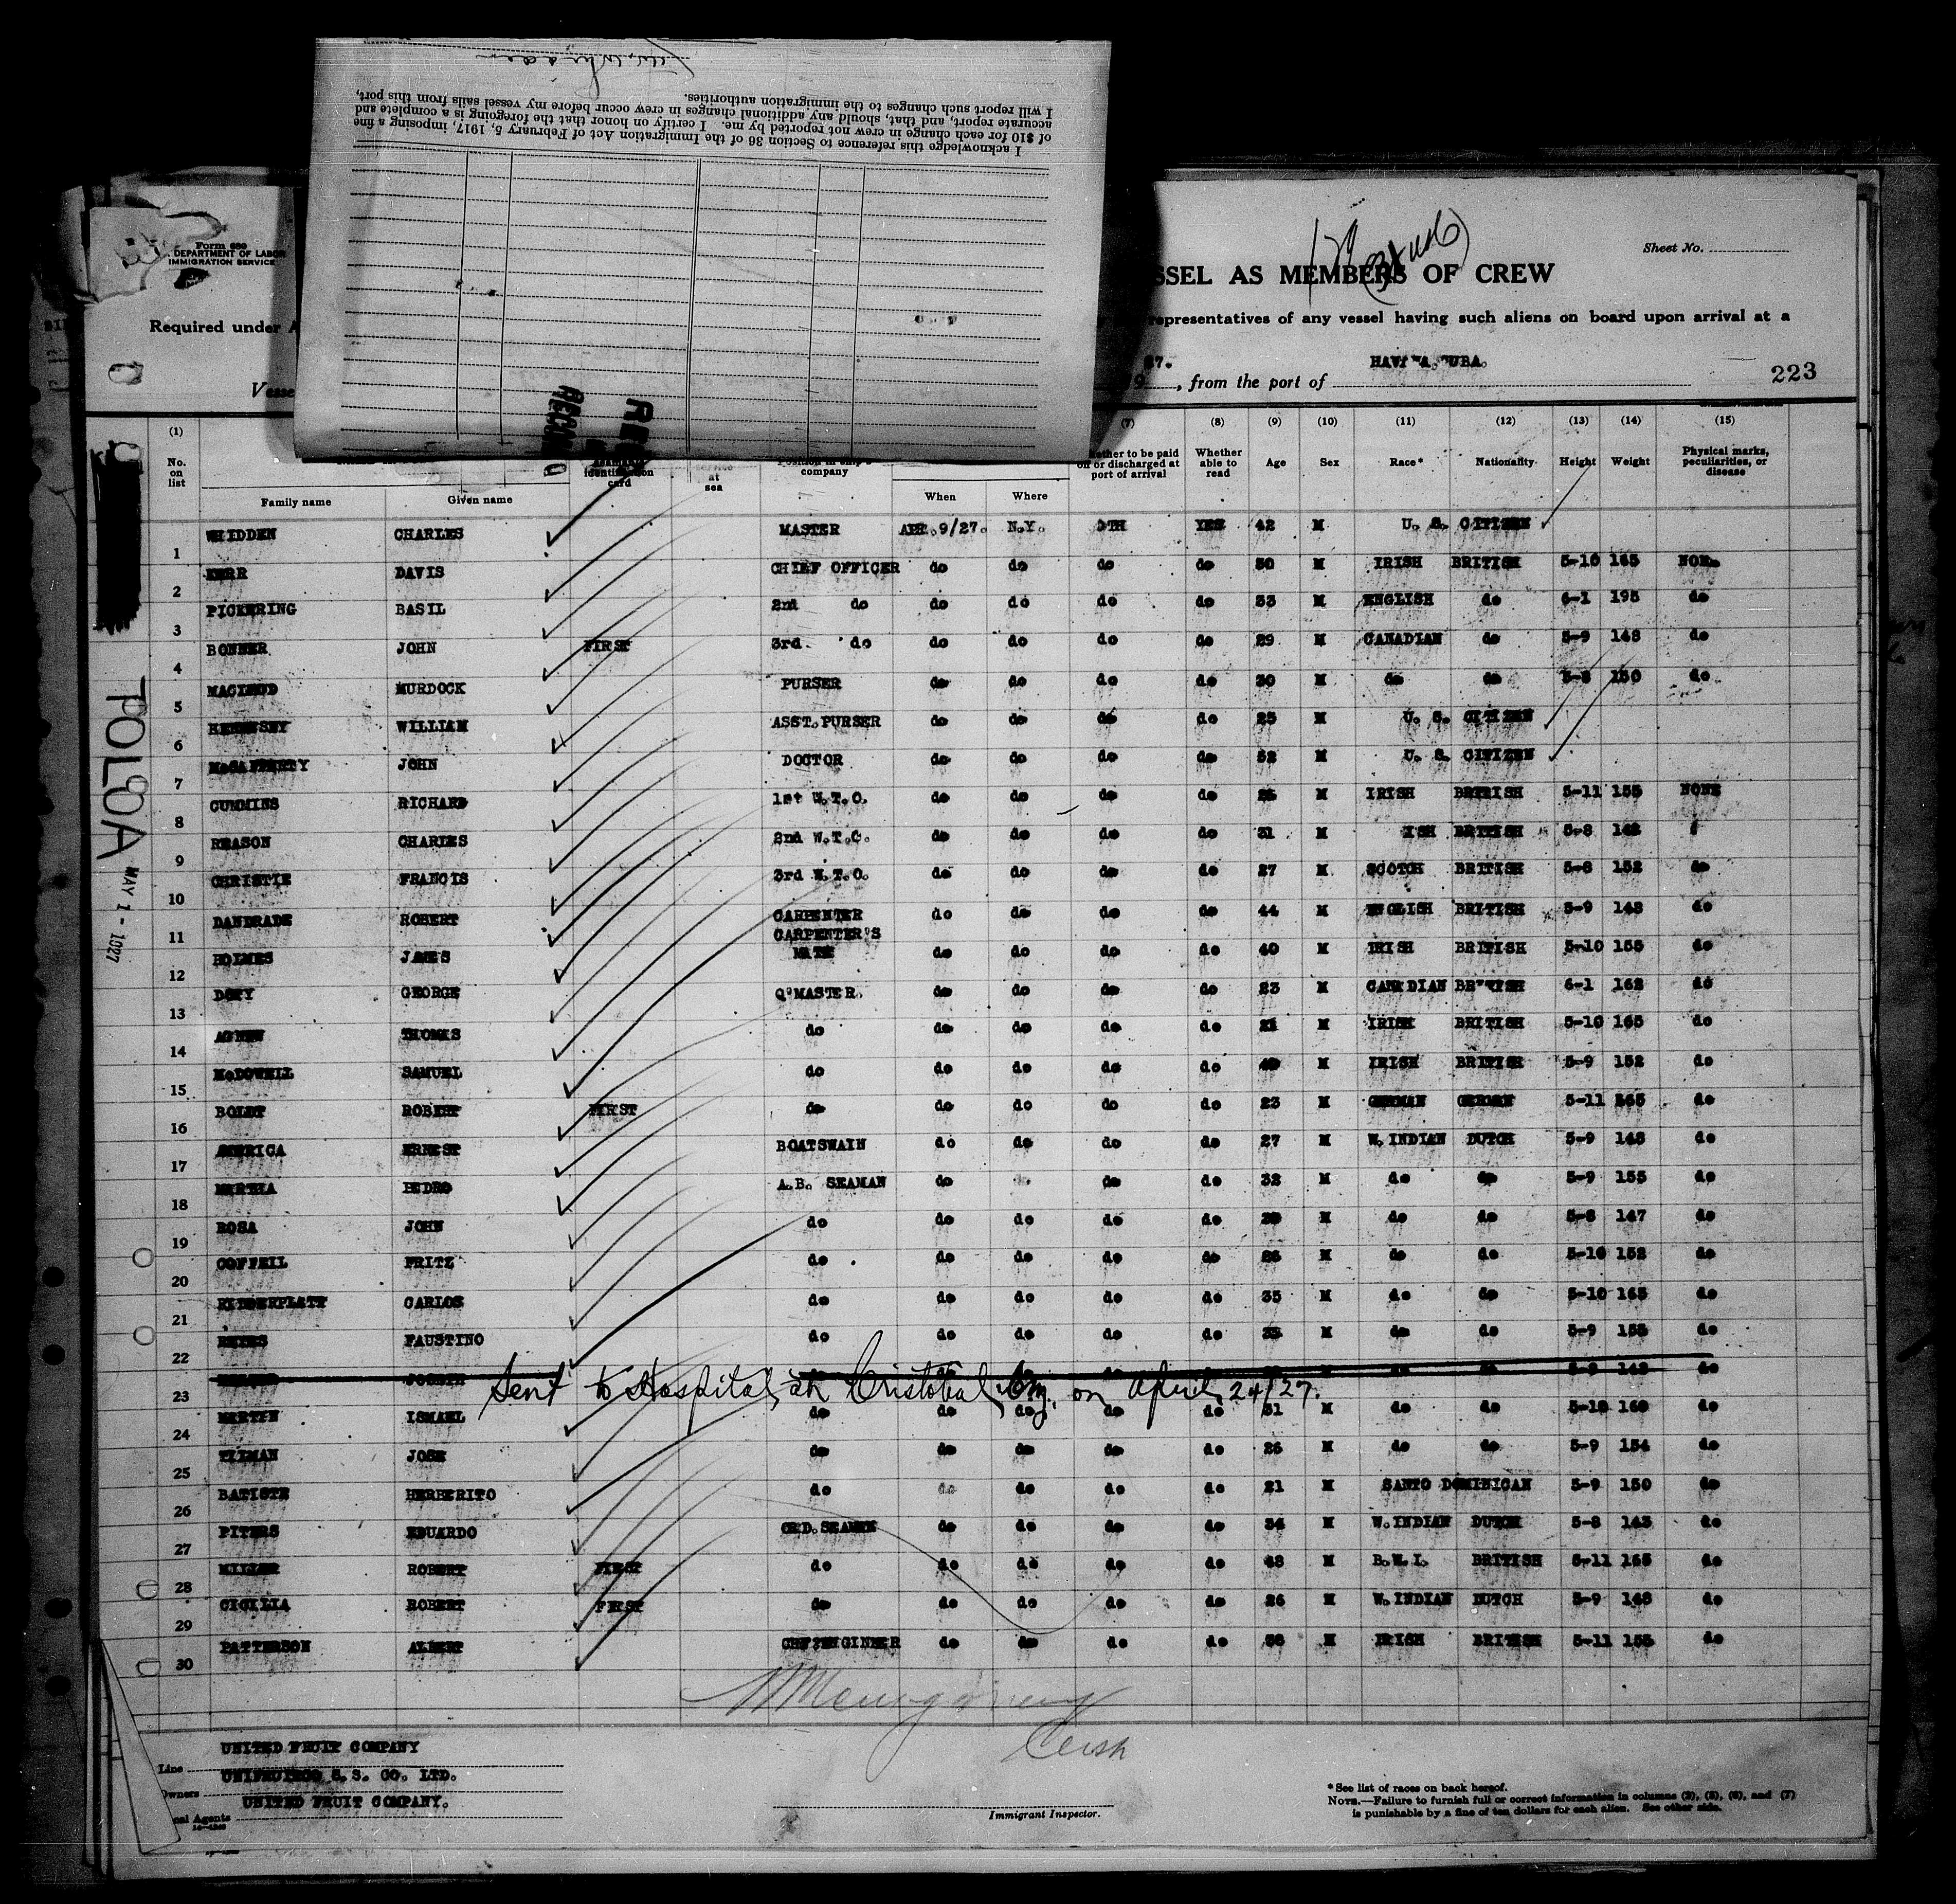 I acknowledge this reference to Section 36 of the Immigration Act of February 5, 1917, imposing a fine
of $10 for each change in crew not reported by me. I certify on honor that the foregoing is a complete and
accurate report, and that, should any additional changes in crew occur before my vessel sails from this port,
I will report such changes to the immigration authorities.
Form 680
DEPARTMENT OF LABOR
IMMIGRATION SERVICE
Sheet No.
SSEL AS MEMBERS OF CREW
Required under
representatives of any vessel having such aliens on board upon arrival at a
27.
, from the port of
223
POLOA
MAY 1 - 1927
(1) (7) (8) (9) (10) (11) (12) (13) (14) (15)
No. on list Family name Given name identification card at sea company When Where or discharged at port of arrival Whether able to read Age Sex Race* Nationality Height Weight Physical marks, peculiarities, or disease
1 WHIDDEN CHARLES MASTER APR. 9/27. N.Y. YES 42 M U. S. CITIZEN
2 KERR DAVIS CHIEF OFFICER do do do do 30 M IRISH BRITISH 5-10 165 NONE
3 PICKERING BASIL 2nd do do do do do 33 M ENGLISH do 6-1 195 do
4 BONNER JOHN FIRST 3rd. do do do do do 29 M CANADIAN do 5-9 148 do
5 MACLEOD MURDOCK PURSER do do do do 30 M do do 5-8 150 do
6 HENNESSY WILLIAM ASST. PURSER do do do do 25 M U. S. CITIZEN
7 McCAFFERTY JOHN DOCTOR do do do do 52 M U. S. CITIZEN
8 CUMMINS RICHARD 1st W.T.O. do do do do 26 M IRISH BRITISH 5-11 155 NONE
9 REASON CHARLES 2nd W.T.O. do do do do 31 M BRITISH 5-8 142
10 CHRISTIE FRANCIS 3rd W.T.O. do do do do 27 M SCOTCH BRITISH 5-8 152 do
11 DANDRADE ROBERT CARPENTER do do do do 44 M ENGLISH BRITISH 5-9 148 do
12 HOLMES JAMES CARPENTER'S MATE do do do do 40 M IRISH BRITISH 5-10 155 do
13 GEORGE Q'MASTER. do do do do 23 M CANADIAN BRITISH 6-1 162 do
14 AGNEW THOMAS do do do do do 21 M IRISH BRITISH 5-10 165 do
15 McDOWELL SAMUEL do do do do do M IRISH BRITISH 5-9 152 do
16 BOLDT ROBERT FIRST do do do do do 23 M GERMAN GERMAN 5-11 165 do
17 AMERICA ERNEST BOATSWAIN do do do do 27 M W. INDIAN DUTCH 5-9 148 do
18 PEDRO A.B. SEAMAN do do do 32 M do do 5-9 155 do
19 ROSA JOHN do do do do do M do do 5-8 147 do
20 COFFEIL FRITZ do do do do do 26 M do do 5-10 152 do
21 CARLOS do do do do do 35 M do do 5-10 165 do
22 REYES FAUSTINO do do do do do M do do 5-9 155 do
23 JOSEPH
Sent to Hospital at Cristobal, C.Z. on April 24/27.
24 MARTIN ISMAEL do do do do do 31 M do do 5-10 160 do
25 TILMAN JOSE do do do do do 26 M do do 5-9 154 do
26 BATISTE HERBERITO do do do do do 21 M SANTO DOMINICAN 5-9 150 do
27 PITERS EDUARDO ORD. SEAMEN do do do do 34 M W. INDIAN DUTCH 5-8 143 do
28 MILLER ROBERT FIRST do do do do do 48 M B.W.I. BRITISH 5-11 165 do
29 CICILIA ROBERT FIRST do do do do do 26 M W. INDIAN DUTCH 5-9 148 do
30 PATTERSON ALBERT do do do do M IRISH BRITISH 5-11 155 do
Line UNITED FRUIT COMPANY
Owners UNIFRUITCO S.S. CO. LTD.
Agents UNITED FRUIT COMPANY.
Immigrant Inspector.
*See list of races on back hereof.
NOTE.—Failure to furnish full or correct information in columns (2), (5), (6), and (7)
is punishable by a fine of ten dollars for each alien. See other side.